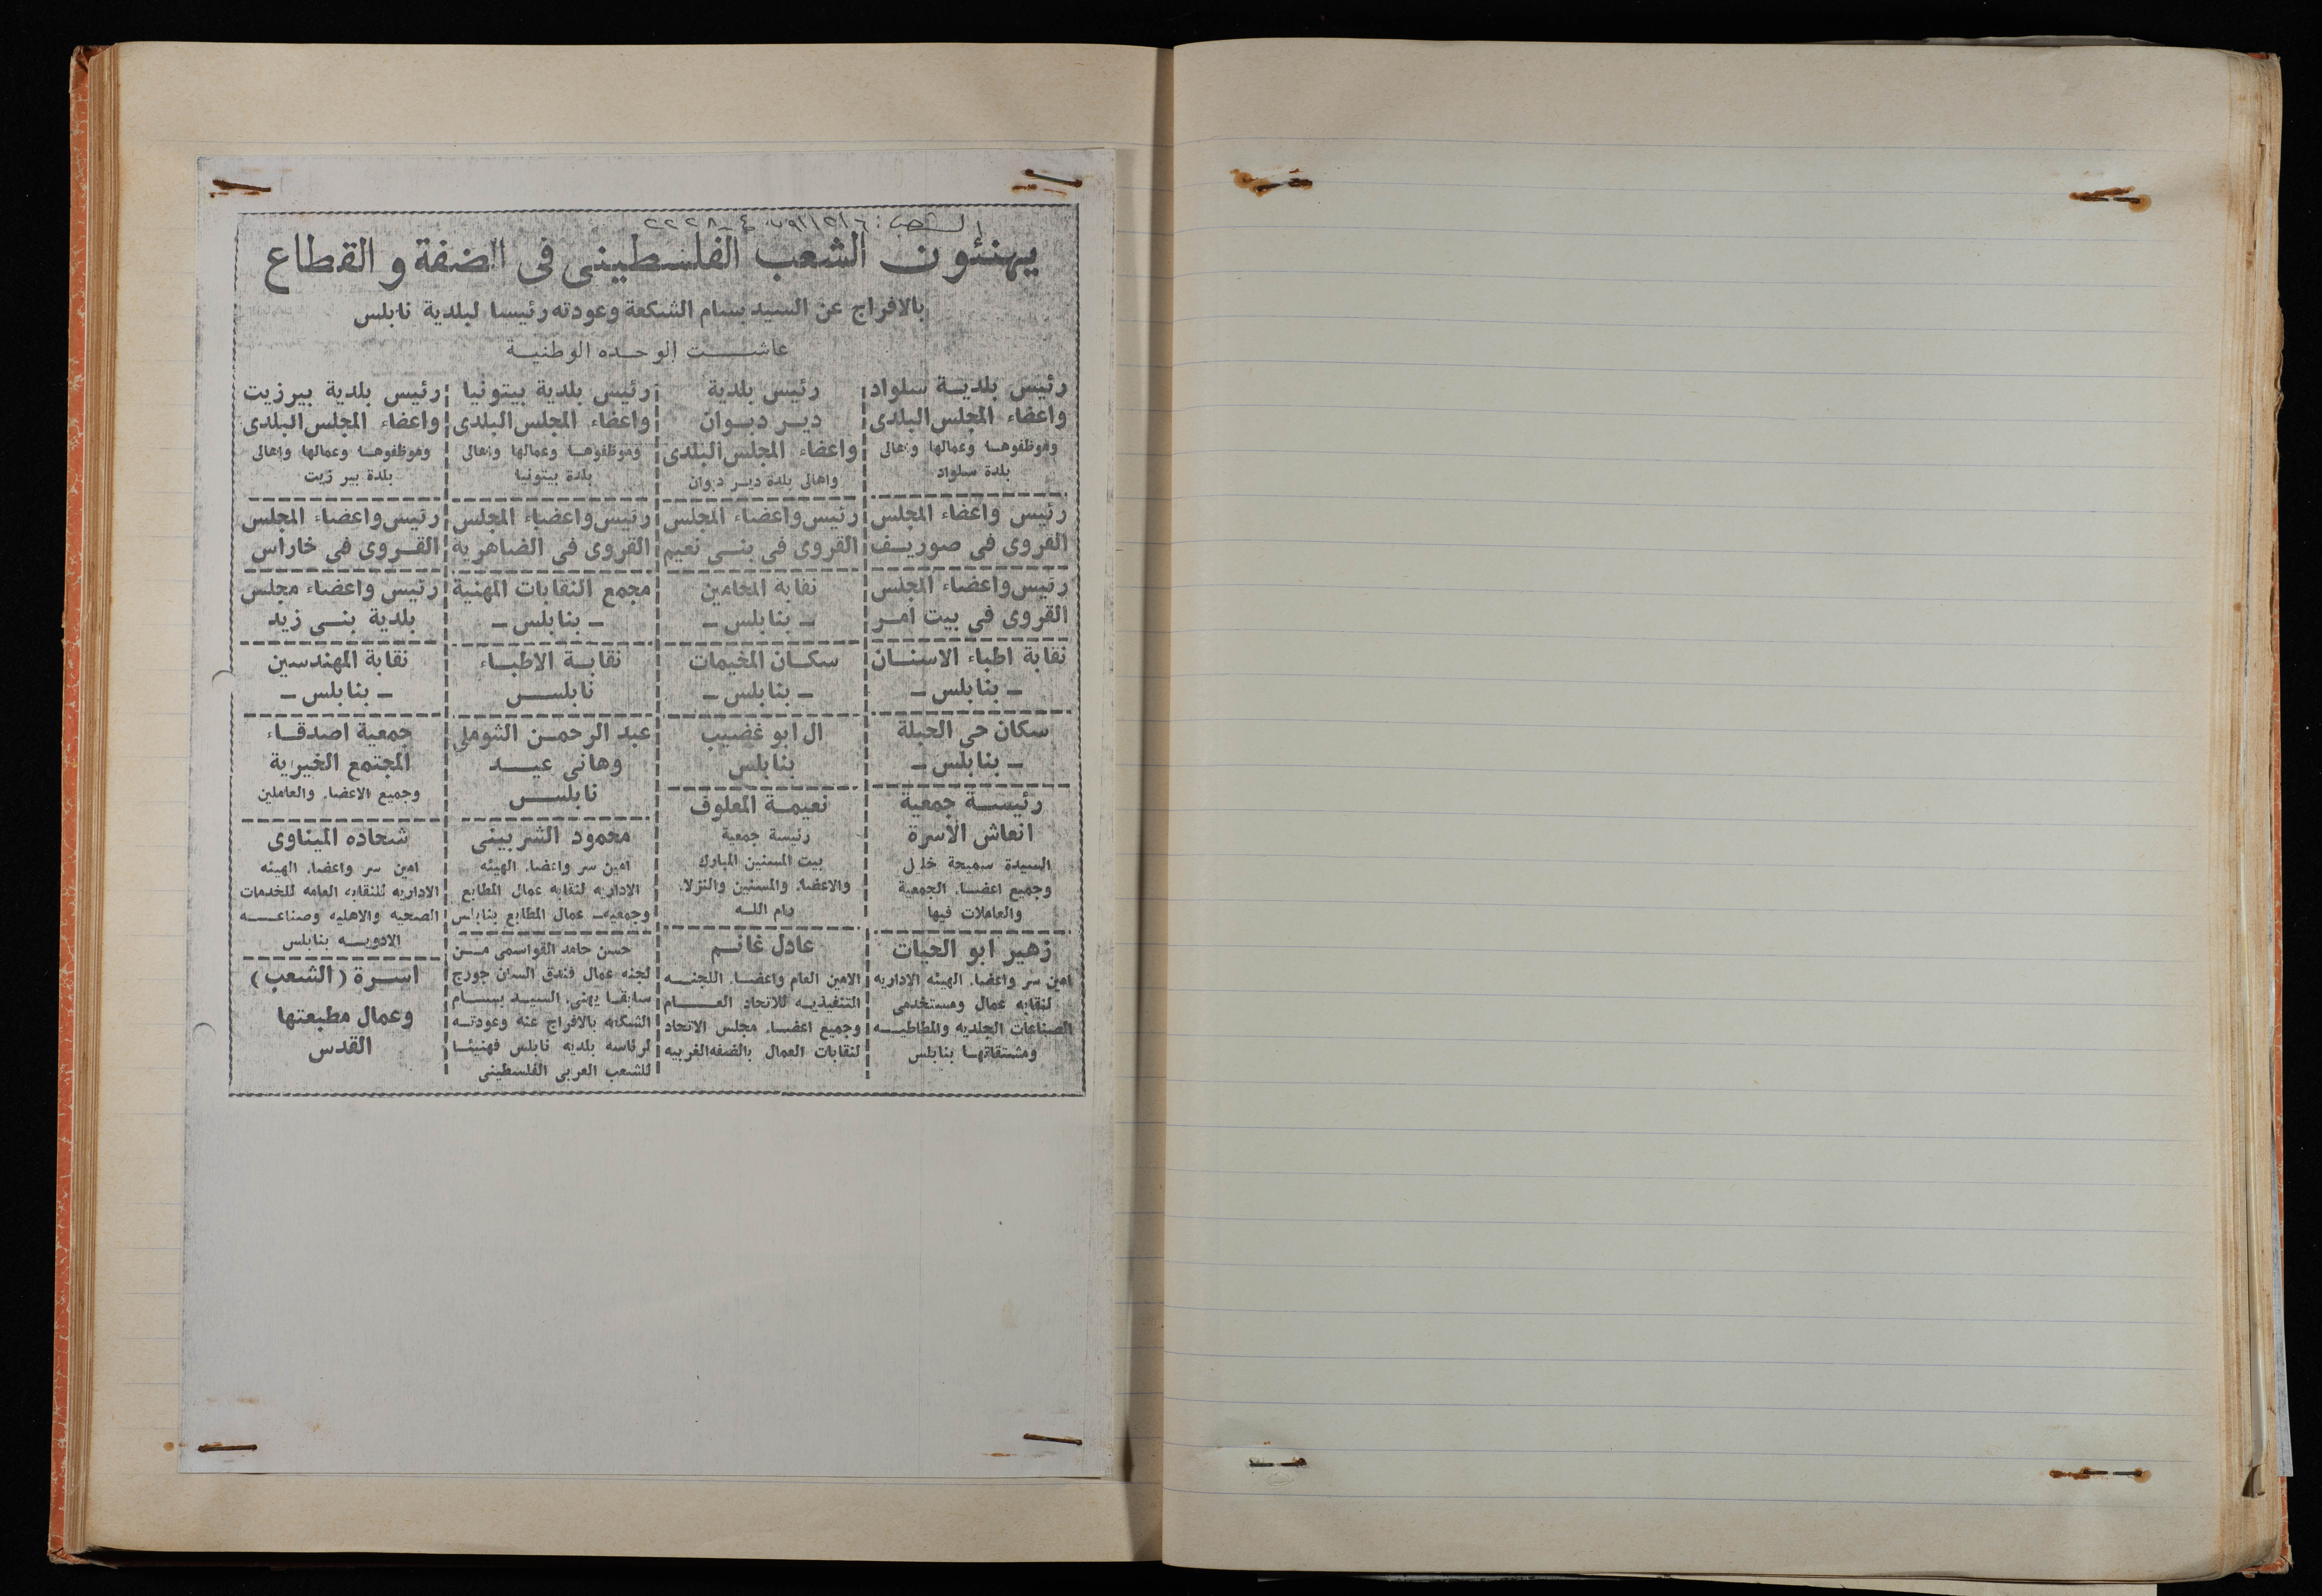 الشعب: ٦
يهنئون الشعب الفلسطينى فى الضفة و القطاع
بالافراج عن السيد بسام الشكعة وعودته رئيسا لبلدية نابلس
عاشــــت الوحــده الوطنيــة
رئيس بلديــة سلواد
واعضاء المجلس البلدى
وموظفوهــا وعمالها واهالى
بلدة سلواد
رئيس بلدية
ديــر دبــوان
واعضاء المجلس البلدى
واهالى بلدة ديــر دبوان
رئيس بلدية بيتونيا
واعضاء المجلس البلدى
وموظفوهــا وعمالها واهالى
بلدة بيتونيا
رئيس بلدية بيرزيت
واعضاء المجلس البلدى
وموظفوهــا وعمالها واهالى
بلدة بير زيت
رئيس واعضاء المجلس
القروى فى صوريــف
رئيس واعضاء المجلس
القروى فى بنــى نعيم
رئيس واعضاء المجلس
القروى فى الضاهرية
رئيس واعضاء المجلس
القــروى فى خاراس
رئيس واعضاء المجلس
القروى فى بيت امــر
نقابة المحامين
– بنابلس –
مجمع النقابات المهنية
– بنابلس –
رئيس واعضاء مجلس
بلدية بنــى زيد
نقابة اطباء الاسنــان
– بنابلس –
سكــان المخيمات
– بنابلس –
نقابــة الاطبــاء
نابلـــس
نقابة المهندسين
– بنابلس –
سكان حى الحبلة
– بنابلس –
ال ابو غضيب
بنابلس
عبد الرحمــن الشوملى
وهانى عيـــد
نابلـــس
جمعية اصدقــاء
المجتمع الخيرية
وجميع الاعضاء والعاملين
رئيســة جمعية
انعاش الاسرة
السيدة سميحة خليل
وجميع اعضــاء الجمعية
والعاملات فيها
نعيمــة المعلوف
رئيسة جمعية
بيت المسنين المبارك
والاعضاء والمسنين والنزلاء
رام اللــه
محمود الشربينى
امين سر واعضاء الهيئه
الاداريه لنقابه عمال المطابع
وجمعيه عمال المطابع بنابلس
شحاده الميناوى
امين سر واعضاء الهيئه
الاداريه للنقابه العامه للخدمات
الصحيه والاهليه وصناعـــه
الادويــه بنابلس
زهير ابو الحيات
امين سر واعضاء الهيئه الاداريه
لنقابه عمال ومستخدمى
الصناعات الجلديه والمطاطيــه
ومشتقاتهــا بنابلس
عادل غانــم
الامين العام واعضــاء اللجنــه
التنفيذيــه للاتحاد العـــام
وجميع اعضــاء مجلس الاتحاد
لنقابات العمال بالضفه الغربيه
حسن حامد القواسمى مــن
لجنه عمال فندق السان جورج
سابقــا يهنىء السيــد بســـام
الشكعه بالافراج عنه وعودتــه
لرئاسه بلديه نابلس فهنيئــا
للشعب العربى الفلسطينى
اســـرة (الشعب)
وعمال مطبعتها
القدس